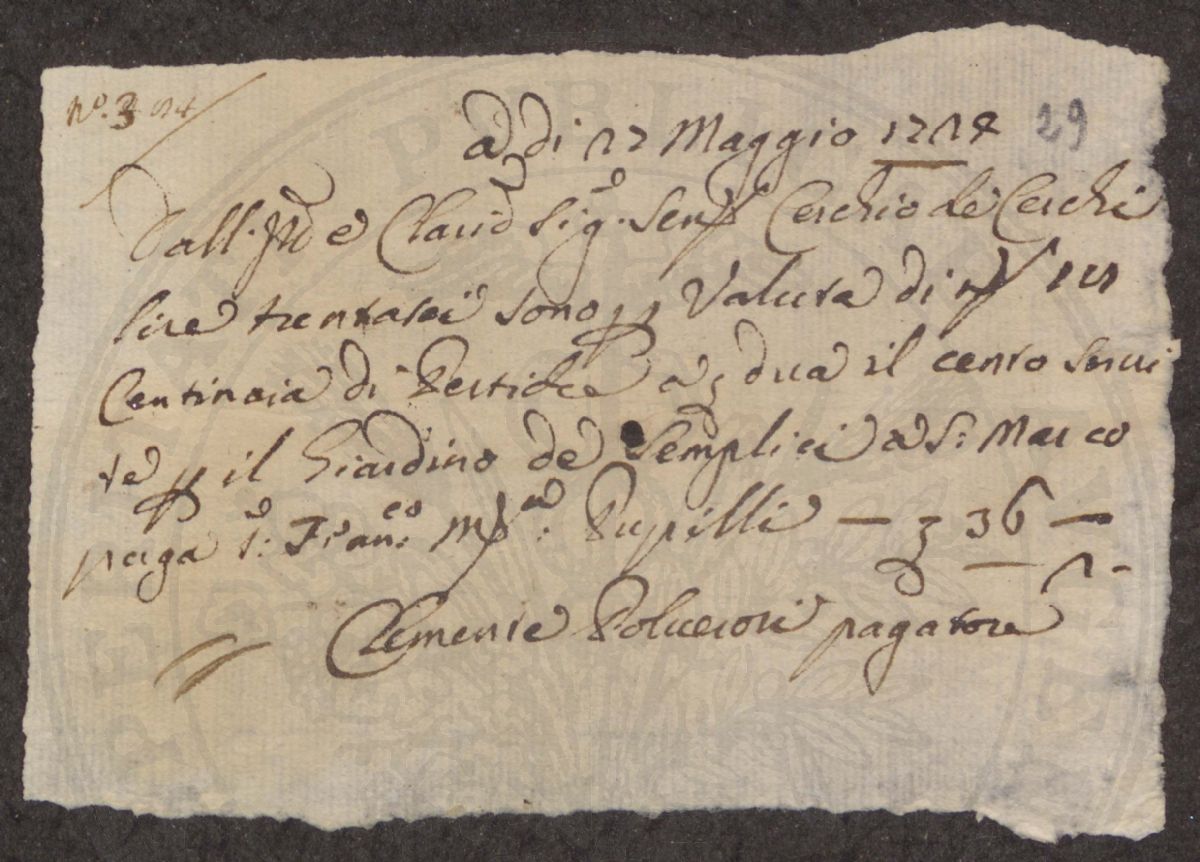 N.º 3
29
Adi 17 Maggio 1718
Dall. e Clariss.º Sig.º Sen.
Cerchio de Cerchi
lire trentasei sono p Valuta di
Centinaia di Pertiche a dua il cento serui
te p il Giardino de Semplici a S: Marco
paga S: Fran.co M.ª Pupilli — 36 —
Clemente pagatore